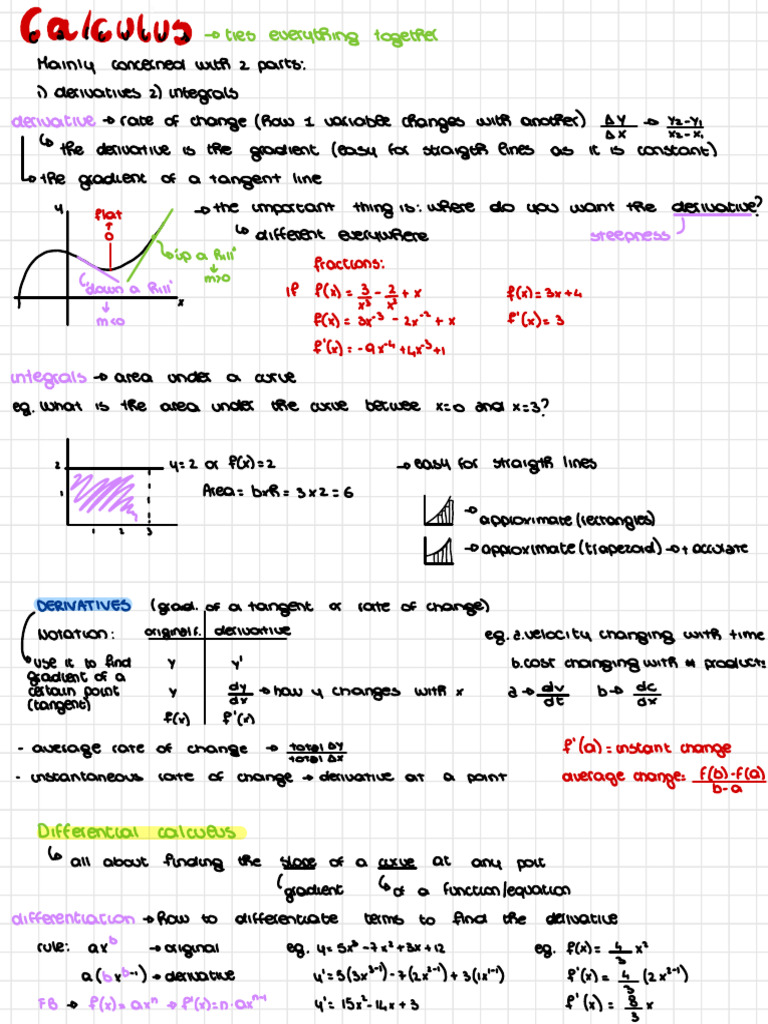 Calculus → ties everything together
Mainly concerned with 2 parts:
1) derivatives 2) integrals
derivative → rate of change (how 1 variable changes with another) ΔY/ΔX → Y₂-Y₁/X₂-X₁
↳ the derivative is the gradient (easy for straigth lines as it is constant)
↳ the gradient of a tangent line
→ the important thing is: where do you want the derivative?
↳ different everywhere
steepness
y
flat
0
"up a hill"
m>0
"down a hill"
m<0
x
fractions:
if f(x) = 3/x³ - 2/x² + x
f(x) = 3x⁻³ - 2x⁻² + x
f'(x) = -9x⁻⁴ + 4x⁻³ + 1
f(x) = 3x+4
f'(x) = 3
integrals → area under a curve
eg. what is the area under the curve betwee x=0 and x=3?
2
1
1 2 3
y=2 or f(x)=2
Area = b×h = 3×2 = 6
→ easy for straigth lines
→ approximate (rectangles)
→ approximate (trapezoid) → + accurate
DERIVATIVES (grad. of a tangent or rate of change)
Notation: original f. derivative
↳ use it to find gradient of a certain point (tangent)
y y'
y dy/dx → how y changes with x
f(x) f'(x)
eg. a. velocity changing with time
b. cost changing with # products
a → dv/dt b → dc/dx
- average rate of change → total ΔY/total ΔX
- instantaneous rate of change → derivative at a point
f'(a) = instant change
average change: f(b)-f(a)/b-a
Differential calculus
↳ all about finding the slope of a curve at any poit
gradient ↳ of a function/equation
differentiation → how to differentiate terms to find the derivative
rule: axᵇ → original
a(bxᵇ⁻¹) → derivative
FB → f(x) = axⁿ → f'(x) = n·axⁿ⁻¹
eg. y = 5x³ - 7x² + 3x + 12
y' = 5(3x³⁻¹) - 7(2x²⁻¹) + 3(1x¹⁻¹)
y' = 15x² - 14x + 3
eg. f(x) = 4/3 x²
f'(x) = 4/3 (2x²⁻¹)
f'(x) = 8/3 x